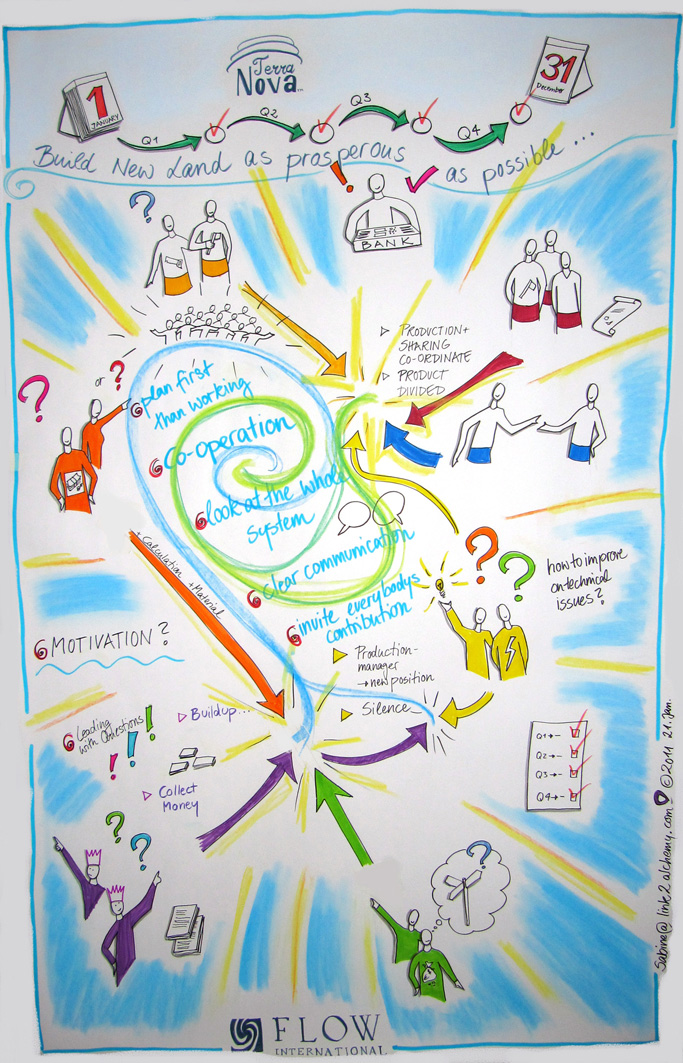 1
JANUARY
Terra
Nova...
31
December
Q1
Q2
Q3
Q4
Build New Land as prosperous as possible ...
?
!
BANK
▷ PRODUCTION+
SHARING
CO-ORDINATE
▷ PRODUCT
DIVIDED
? or ?
plan first
than working
Co-operation
look at the whole
system
clear communication
invite everybodys
contribution
• Calculation + Material
? ?
how to improve
on technical
issues?
MOTIVATION?
▷ Production-
manager
→ new position
▷ Silence
▷ Buildup...
Leading
with Questions
!!!
▷ Collect
Money
Q1→-
Q2→-
Q3→-
Q4→-
? ?
?
Sabine@link2alchemy.com ©2011 21.Jan.
FLOW
INTERNATIONAL